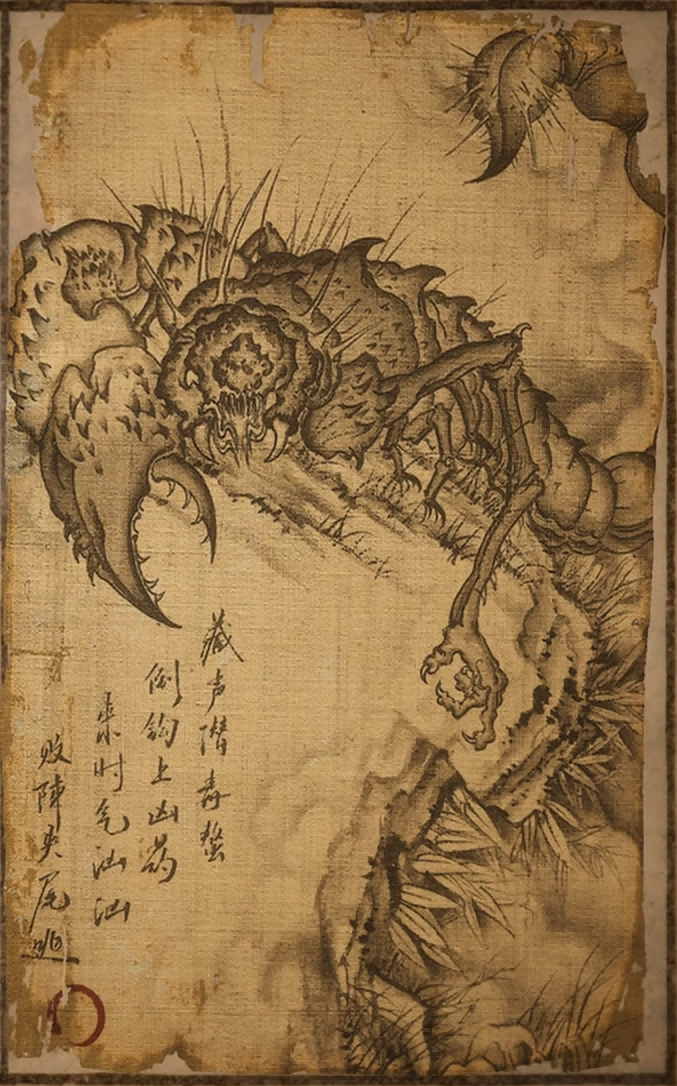 藏声潜毒螫
倒钩上凶药
来时气汹汹
败陣夹尾逃